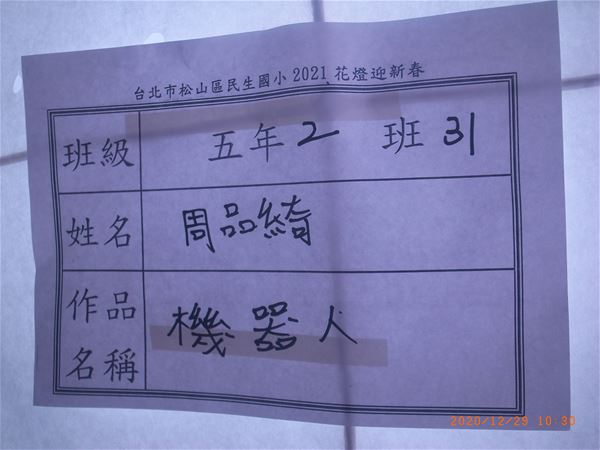 台北市松山區民生國小2021花燈迎新春
班級 五年2 班 31
姓名 周品綺
作品名稱 機器人
2020/12/29 10:30